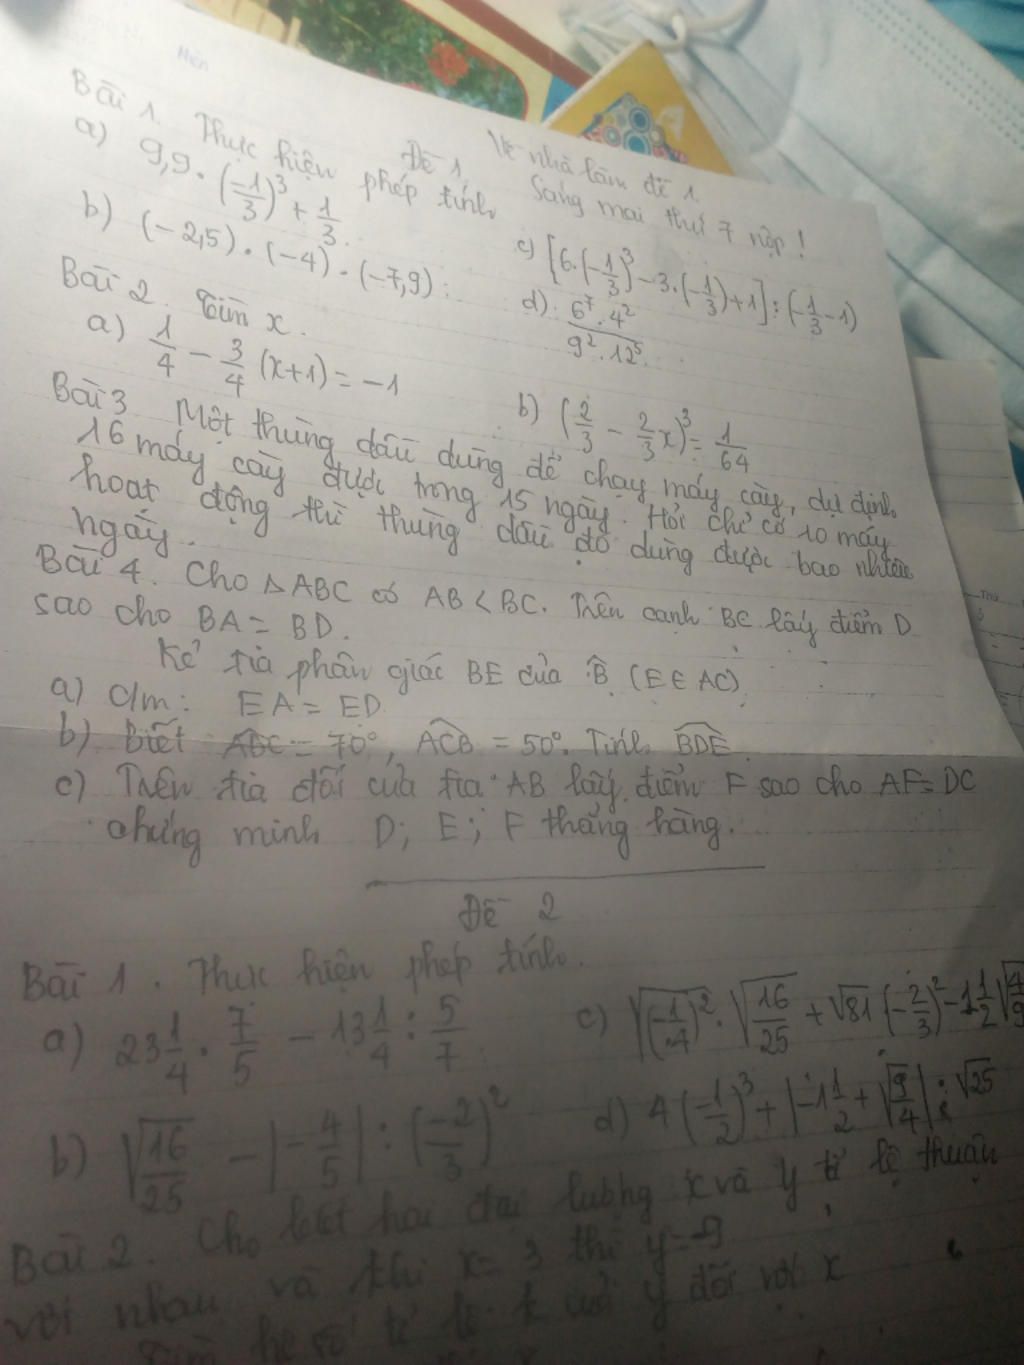 Về nhà làm đề 1.
Sáng mai thứ 7 nộp!
Đề 1.
Bài 1. Thực hiện phép tính
a) 9,9 . (-1/3)³ + 1/3.
b) (-2,5) . (-4) . (-7,9)
c) [6.(-1/3)³ - 3.(-1/3)+1] : (-1/3 - 1)
d) 6⁷.4² / 9².12⁵
Bài 2. Tìm x.
a) 1/4 - 3/4 (x+1) = -1
b) (2/3 - 2/3x)³ = 1/64
Bài 3. Một thùng dầu dùng để chạy máy cày, dự định
16 máy cày được trong 15 ngày. Hỏi chỉ có 10 máy
hoạt động thì thùng dầu đó dùng được bao nhiêu
ngày.
Bài 4. Cho △ABC có AB < BC. Trên cạnh BC lấy điểm D
sao cho BA = BD.
Kẻ tia phân giác BE của B̂ (E ∈ AC)
a) C/m: EA = ED
b) Biết ABC = 70°, ACB = 50°. Tính BDE
c) Trên tia đối của tia AB lấy điểm F sao cho AF = DC
chứng minh D; E; F thẳng hàng.
Đề 2
Bài 1. Thực hiện phép tính.
a) 23 1/4 . 7/5 - 13 1/4 : 5/7
b) √(16/25) - |-4/5| : (-2/3)²
c) √((-1/4)²) . √(16/25) + √81 (-2/3)² - 1 1/2 √(4/9)
d) 4(-1/2)³ + |-1 1/2 + √(9/4)| : √25
Bài 2. Cho biết hai đại lượng x và y tỉ lệ thuận
với nhau và khi x = 3 thì y = -9
Tìm hệ số tỉ lệ k của y đối với x